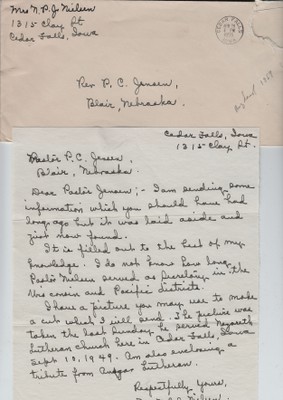 Mrs N. P. J. Nielsen
1315 Clay St.
Cedar Falls, Iowa
CEDAR FALLS
IOWA
Rev P. C. Jensen,
Blair, Nebraska.
Cedar Falls, Iowa
1315 Clay St.
Pastor P. C. Jensen,
Blair, Nebraska.
Dear Pastor Jensen; - I am sending some
information which you should have had
long ago but it was laid aside and
just now found.
It is filled out to the best of my
knowledge. I do not know how long
Pastor Nielsen served as Secretary in the
Wisconsin and Pacific districts.
I have a picture you may use to make
a cut which I will send. The picture was
taken the last Sunday he served Nazareth
Lutheran Church here in Cedar Falls, Iowa
Sept. 18, 1949. Am also enclosing a
tribute from Ansgar Lutheran.
Respectfully yours,